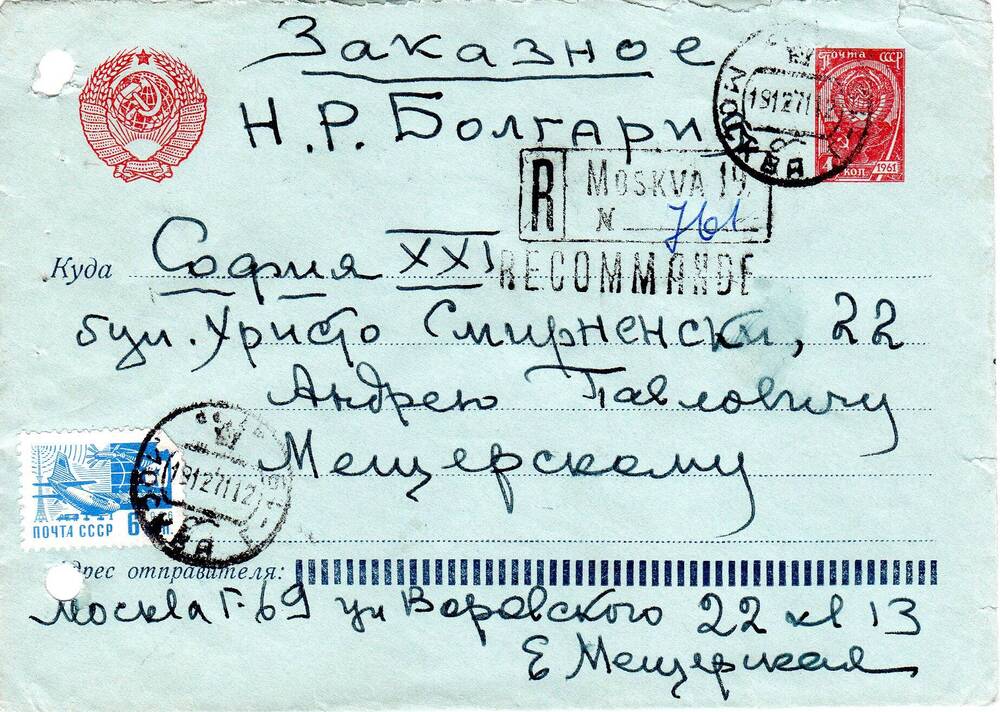 Заказное
Н.Р. Болгария
ПОЧТА СССР
КОП. 1961
МОСКВА
R MOSKVA 19
N 761
RECOMMANDE
Куда София XXI
бул. Христо Смирненски, 22
Андрею Павловичу
Мещерскому
ПОЧТА СССР 6
МОСКВА
Адрес отправителя:
Москва Г-69 ул Воровского 22 кв 13
Е Мещерская